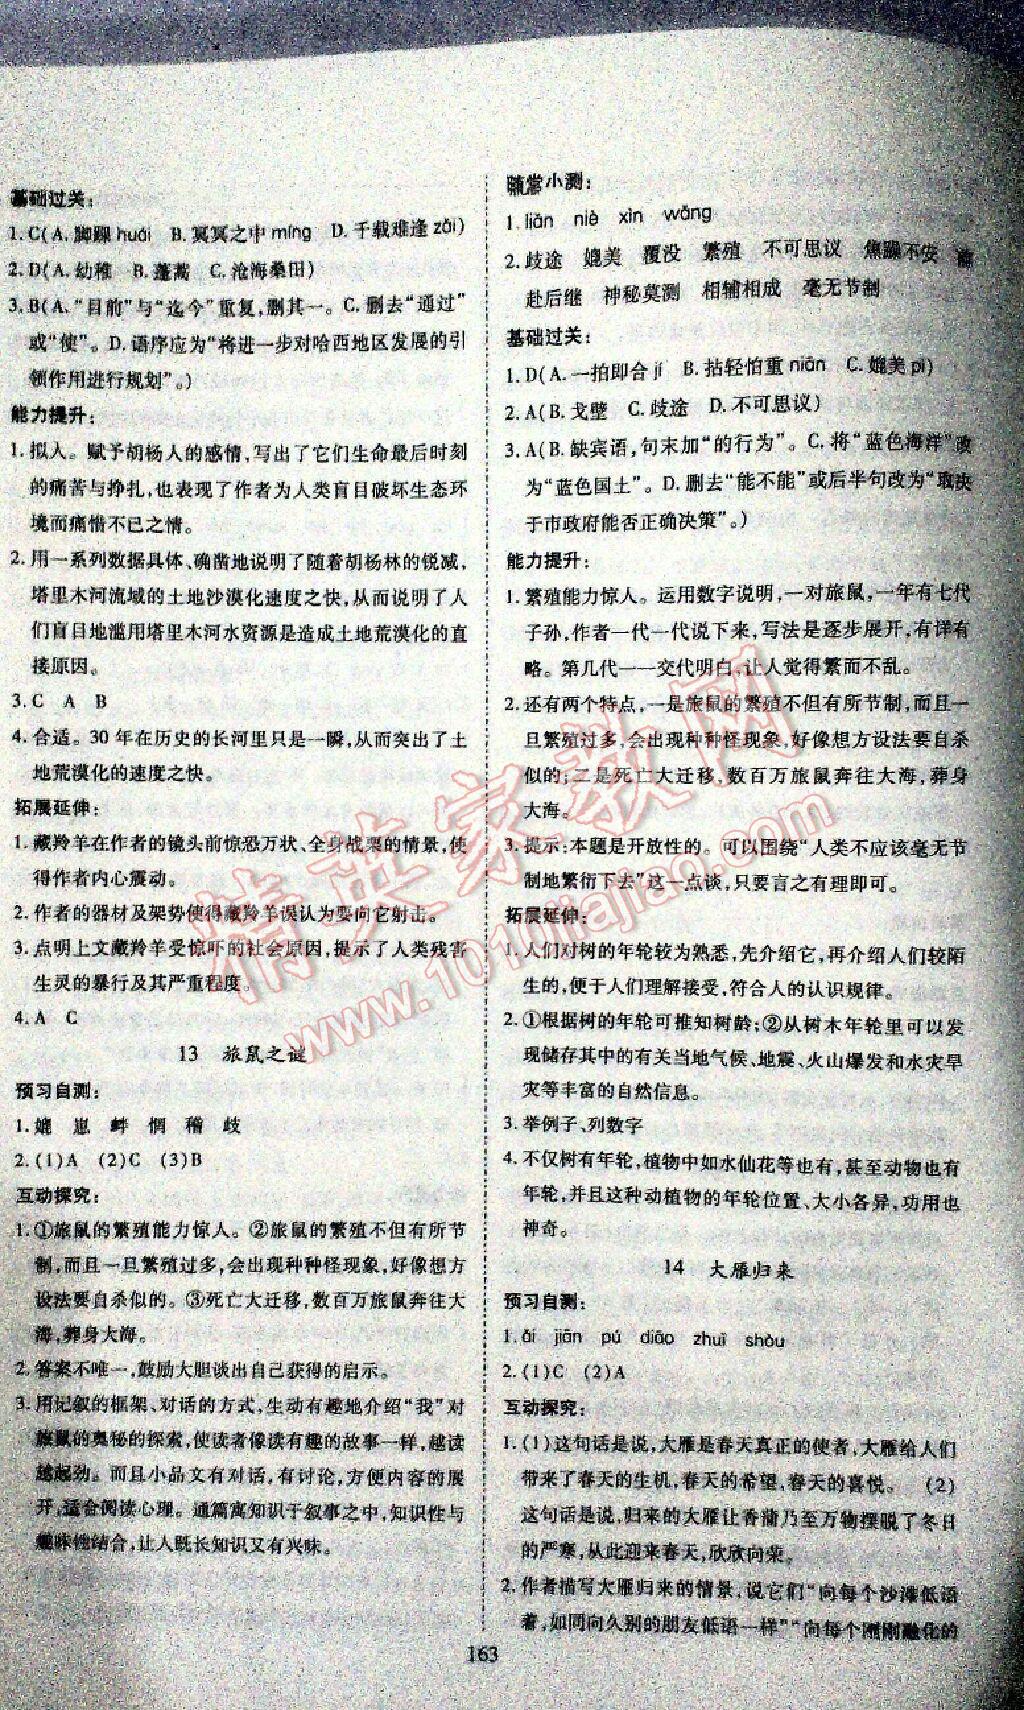 基础过关:
1. C(A. 脚踝 huái  B. 冥冥之中 míng  D. 千载难逢 zǎi)
2. D(A. 幼稚  B. 蓬蒿  C. 沧海桑田)
3. B(A. “目前”与“迄今”重复,删其一。C. 删去“通过”
或“使”。D. 语序应为“将进一步对哈西地区发展的引
领作用进行规划”。)
能力提升:
1. 拟人。赋予胡杨人的感情,写出了它们生命最后时刻
的痛苦与挣扎,也表现了作者为人类盲目破坏生态环
境而痛惜不已之情。
2. 用一系列数据具体、确凿地说明了随着胡杨林的锐减,
塔里木河流域的土地沙漠化速度之快,从而说明了人
们盲目地滥用塔里木河水资源是造成土地荒漠化的直
接原因。
3. C  A  B
4. 合适。30 年在历史的长河里只是一瞬,从而突出了土
地荒漠化的速度之快。
拓展延伸:
1. 藏羚羊在作者的镜头前惊恐万状、全身战栗的情景,使
得作者内心震动。
2. 作者的器材及架势使得藏羚羊误认为要向它射击。
3. 点明上文藏羚羊受惊吓的社会原因,提示了人类残害
生灵的暴行及其严重程度。
4. A  C
13  旅鼠之谜
预习自测:
1. 媲  崽  衅  惘  稽  歧
2. (1)A  (2)C  (3)B
互动探究:
1. ①旅鼠的繁殖能力惊人。②旅鼠的繁殖不但有所节
制,而且一旦繁殖过多,会出现种种怪现象,好像想方
设法要自杀似的。③死亡大迁移,数百万旅鼠奔往大
海,葬身大海。
2. 答案不唯一,鼓励大胆谈出自己获得的启示。
3. 用记叙的框架、对话的方式,生动有趣地介绍“我”对
旅鼠的奥秘的探索,使读者像读有趣的故事一样,越读
越起劲。而且小品文有对话,有讨论,方便内容的展
开,适合阅读心理。通篇寓知识于叙事之中,知识性与
趣味性结合,让人既长知识又有兴味。
随堂小测:
1. liǎn  niè  xìn  wǎng
2. 歧途  媲美  覆没  繁殖  不可思议  焦躁不安  前
赴后继  神秘莫测  相辅相成  毫无节制
基础过关:
1. D(A. 一拍即合 jí  B. 拈轻怕重 niān  C. 媲美 pì)
2. A(B. 戈壁  C. 歧途  D. 不可思议)
3. A(B. 缺宾语,句末加“的行为”。C. 将“蓝色海洋”改
为“蓝色国土”。D. 删去“能不能”或后半句改为“取决
于市政府能否正确决策”。)
能力提升:
1. 繁殖能力惊人。运用数字说明,一对旅鼠,一年有七代
子孙,作者一代一代说下来,写法是逐步展开,有详有
略。第几代一一交代明白,让人觉得繁而不乱。
2. 还有两个特点,一是旅鼠的繁殖不但有所节制,而且一
旦繁殖过多,会出现种种怪现象,好像想方设法要自杀
似的;二是死亡大迁移,数百万旅鼠奔往大海,葬身
大海。
3. 提示:本题是开放性的。可以围绕“人类不应该毫无节
制地繁衍下去”这一点谈,只要言之有理即可。
拓展延伸:
1. 人们对树的年轮较为熟悉,先介绍它,再介绍人们较陌
生的,便于人们理解接受,符合人的认识规律。
2. ①根据树的年轮可推知树龄;②从树木年轮里可以发
现储存其中的有关当地气候、地震、火山爆发和水灾旱
灾等丰富的自然信息。
3. 举例子、列数字
4. 不仅树有年轮,植物中如水仙花等也有,甚至动物也有
年轮,并且这种动植物的年轮位置、大小各异,功用也
神奇。
14  大雁归来
预习自测:
1. ǎi  jiān  pú  diāo  zhuī  shòu
2. (1)C  (2)A
互动探究:
1. (1)这句话是说,大雁是春天真正的使者,大雁给人们
带来了春天的生机,春天的希望,春天的喜悦。  (2)
这句话是说,归来的大雁让香蒲乃至万物摆脱了冬日
的严寒,从此迎来春天,欣欣向荣。
2. 作者描写大雁归来的情景,说它们“向每个沙滩低语
着,如同向久别的朋友低语一样”“向每个刚刚融化的
163
精英家教网
www.1010jiajiao.com